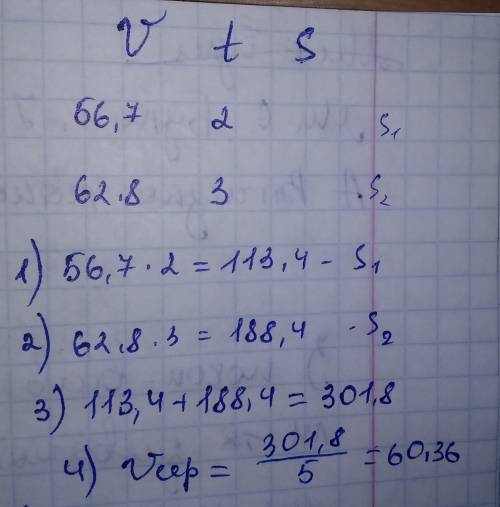 V t S
56,7 2 S₁
62.8 3 S₂
1) 56,7 · 2 = 113,4 - S₁
2) 62.8 · 3 = 188,4 - S₂
3) 113,4 + 188,4 = 301,8
4) Vср = 301,8/5 = 60,36